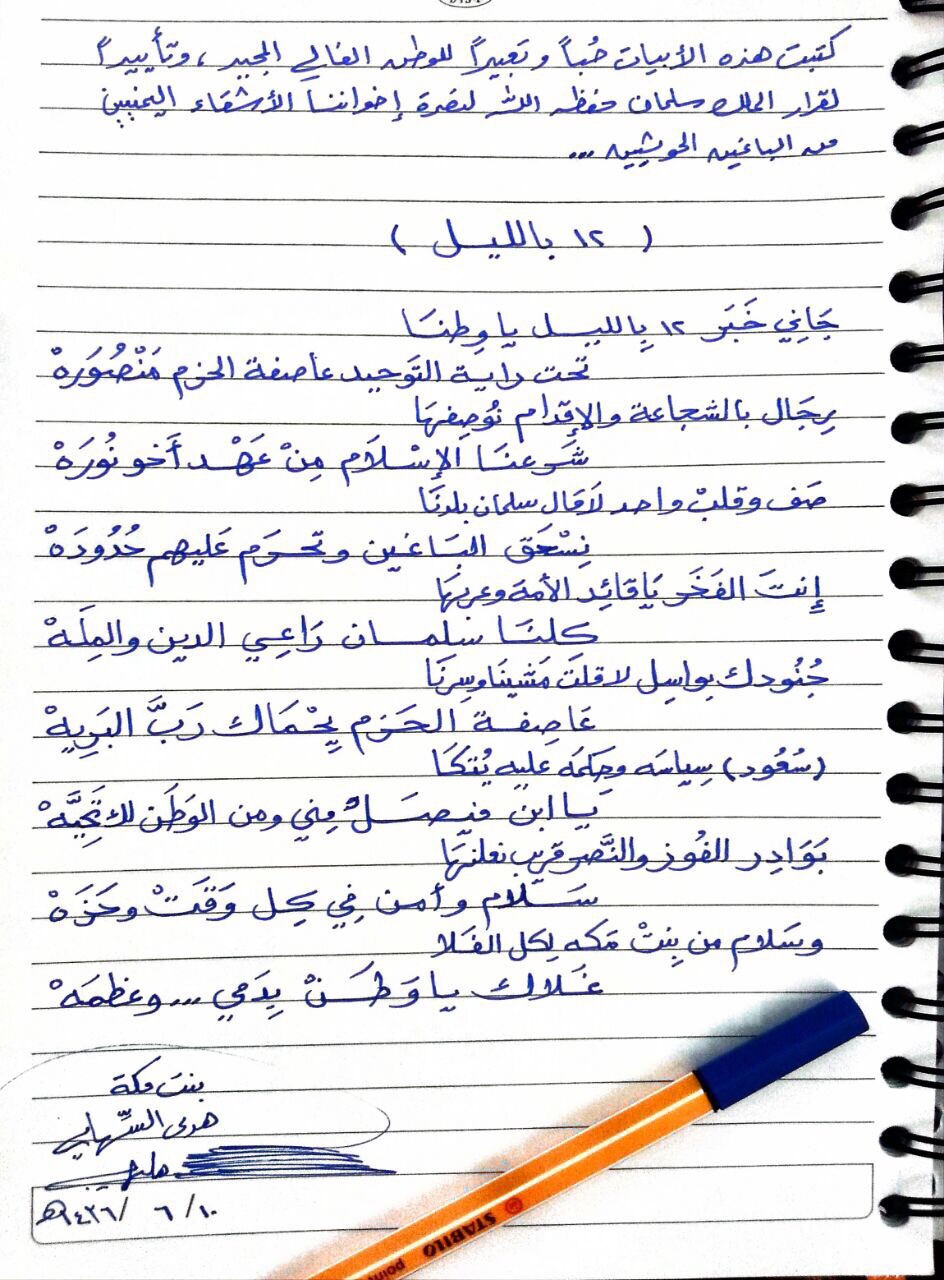 كتبت هذه الأبيات حُباً وتعبيراً للوطن الغالي المجيد، وتأييداً
لقرار الملك سلمان حفظه الله لنصرة إخواننا الأشقاء اليمنيين
من الباغين الحوثيين ...
( ١٢ بالليـل )
جَاني خَبَر ١٢ بِالليـل يا وطنَا
تحت راية التَوحيد عاصفة الحزم مَنْصُورَهْ
رِجَال بالشجاعة والإقدام نُوصِفهَا
شَرعنَا الإسْلَام مِنْ عَهْد أَخو نُورَهْ
صَف وقلبْ واحد لاقال سلمان بلدنَا
نِسْحَق البَاغين وتحرَم عَليهم حُدُودَهْ
إِنتَ الفَخَر يَا قائِد الأمه وعربهَا
كلنَا سلمـان رَاعِي الدين والمِلَهْ
جُنُودك بواسِل لا قلتَ مَشينَا وسِرنَا
عَاصِفة الحَزم يحْمَاك رَبَّ البَريهْ
(سُعُود) سِياسَه وحِكمَه عليه يُتكَا
يا ابن فيصَلْ مِني ومن الوَطَن لك تحِيَّهْ
بَوَادِر الفُوز والنَّصر قريب نعلنهَا
سَـلَام وأمن فِي كِل وَقَتْ وحَزَهْ
وسَلام من بِنتْ مَكه لِكل الفَلا
غَلاك يا وَطَـنْ بِدَمي ... وعظمَهْ
بنت مكة
هدى السهلي
١٠/ ٦ /١٤٣٦هـ
STABILO
point